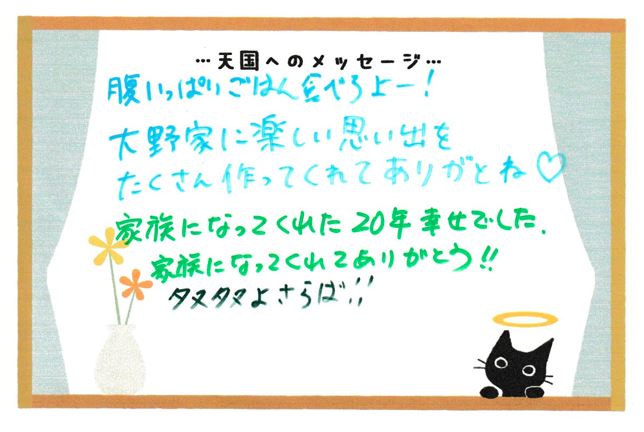 …天国へのメッセージ…
腹いっぱいごはん食べろよー!
大野家に楽しい思い出を
たくさん作ってくれてありがとね♡
家族になってくれた20年幸せでした.
家族になってくれてありがとう!!
タヌタヌよさらば!!